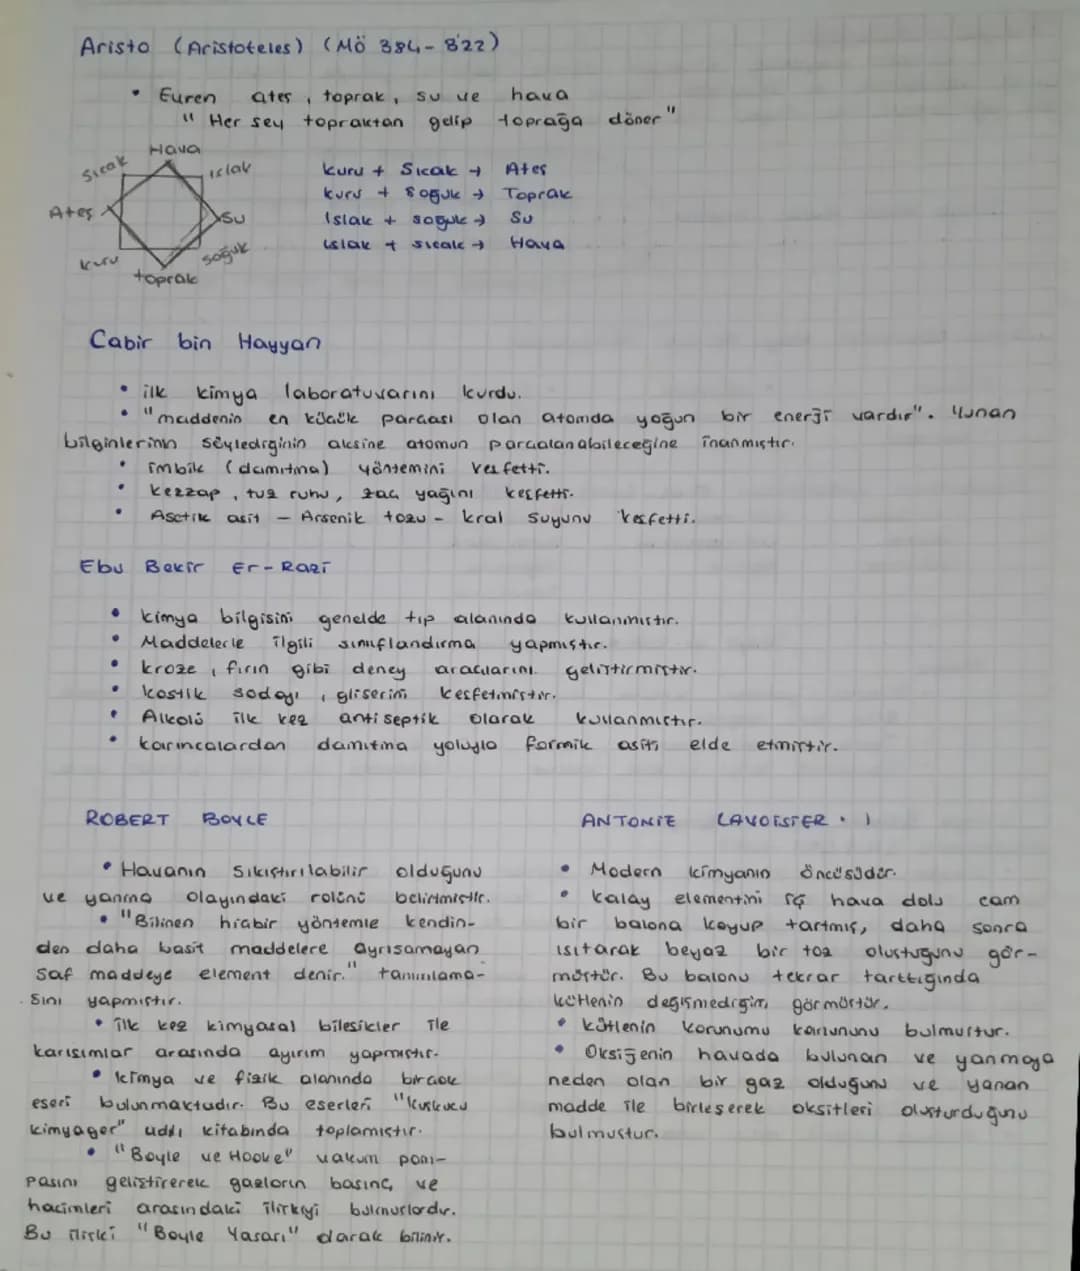 Aristo (Aristoteles) (MÖ 384-322)
• Evren ateş, toprak, su ve hava
"Her şey topraktan gelip toprağa döner"
Hava
Sıcak
ıslak
Ateş
Su
kuru
soğuk
toprak
kuru + Sıcak → Ateş
kuru + Soğuk → Toprak
Islak + soğuk → Su
ıslak + sıcak → Hava
Cabir bin Hayyan
• ilk kimya laboratuvarını kurdu.
• "maddenin en küçük parçası olan atomda yoğun bir enerji vardır". Yunan
bilginlerinin söylediğinin aksine atomun parçalanabileceğine inanmıştır.
• imbik (damıtma) yöntemini keşfetti.
• kezzap, tuz ruhu, zaç yağını keşfetti.
• Asetik asit - Arsenik tozu - kral suyunu keşfetti.
Ebu Bekir Er-Razi
• kimya bilgisini genelde tıp alanında kullanmıştır.
• Maddelerle ilgili sınıflandırma yapmıştır.
• kroze, fırın gibi deney araçlarını geliştirmiştir.
• kostik sodayı, gliserini keşfetmiştir.
• Alkolü ilk kez antiseptik olarak kullanmıştır.
• karıncalardan damıtma yoluyla formik asiti elde etmiştir.
ROBERT BOYLE
• Havanın Sıkıştırılabilir olduğunu
ve yanma olayındaki rolünü belirtmiştir.
• "Bilinen hiçbir yöntemle kendin-
den daha basit maddelere ayrışamayan
saf maddeye element denir." tanımlama-
sını yapmıştır.
• ilk kez kimyasal bileşikler ile
karışımlar arasında ayırım yapmıştır.
• kimya ve fizik alanında birçok
eseri bulunmaktadır. Bu eserleri "kuşkucu
kimyager" adlı kitabında toplamıştır.
• "Boyle ve Hooke" vakum pom-
pasını geliştirerek gazların basınç ve
hacimleri arasındaki ilişkiyi bulmuşlardır.
Bu ilişki "Boyle Yasası" olarak bilinir.
ANTONIE LAVOISIER
• Modern kimyanın öncüsüdür.
• kalay elementini içi hava dolu cam
bir balona koyup tartmış, daha sonra
ısıtarak beyaz bir toz oluştuğunu gör-
müştür. Bu balonu tekrar tarttığında
kütlenin değişmediğini görmüştür.
• kütlenin korunumu kanununu bulmuştur.
• Oksijenin havada bulunan ve yanmaya
neden olan bir gaz olduğunu ve yanan
madde ile birleşerek oksitleri oluşturduğunu
bulmuştur.